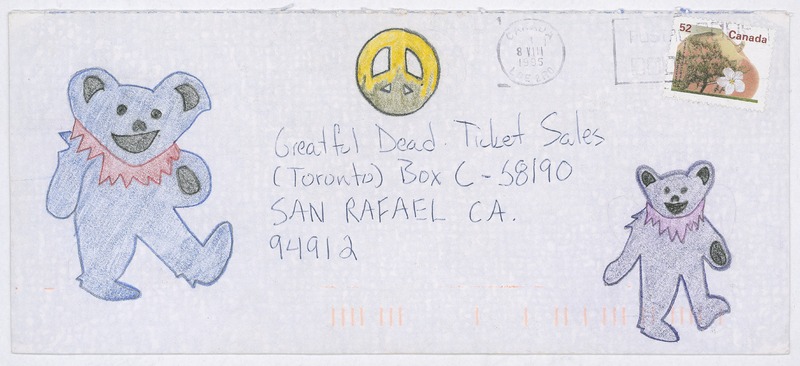 52 Canada
CANADA
8 VIII
1995
Greatful Dead Ticket Sales
(Toronto) Box C-S8190
SAN RAFAEL CA.
94912